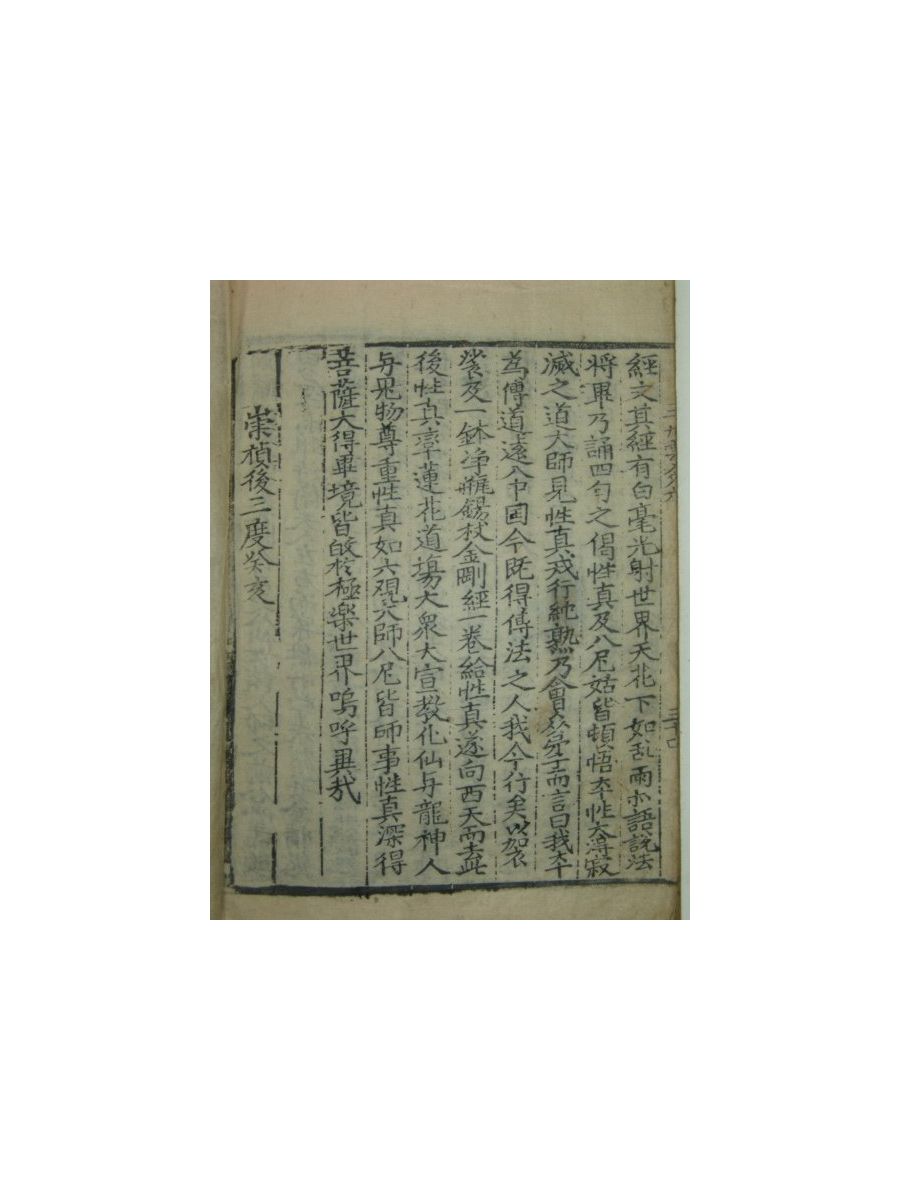 經文其經有白毫光射世界天花下如乱雨亦語說法
將畢乃誦四句之偈性真及八尼姑皆頓悟本性大得寂
滅之道大師見性真戒行純熟乃會眾弟而言曰我本
為傳道遠入中国今既得傳法之人我今行矣以袈
裟及一鉢净甁錫杖金剛經一卷給性真遂向西天而去此
後性真率蓮花道場大衆大宣教化仙与龍神人
与鬼物尊重性真如六觀大師八尼皆師事性真深得
菩薩大得畢境皆皈於極樂世界嗚呼異哉
崇禎後三度癸亥